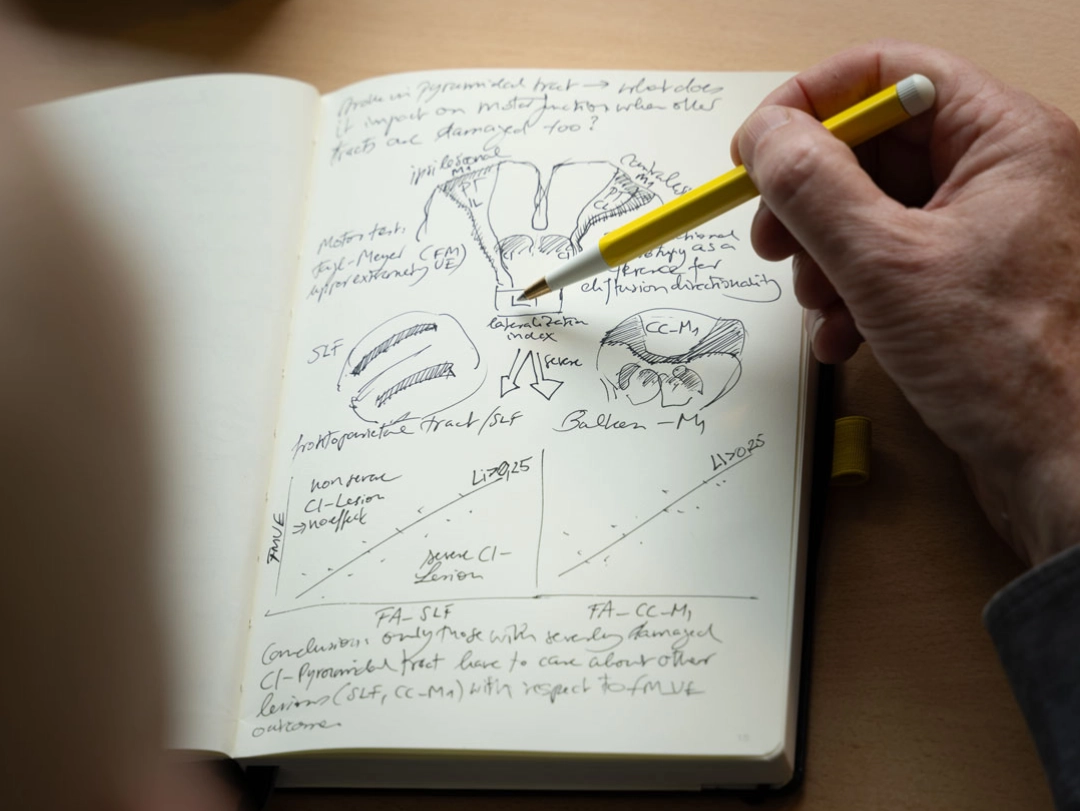 pyramidal tract → what does
it impact on motor function when other
tracts are damaged too?
ipsilesional
M1
M1
PT
IL
PT
CL
Motor test:
Fugl-Meyer (FM
upper extremity UE)
as a
for
diffusion directionality
lateralization
index
severe
SLF
CC-M1
frontoparietal tract/SLF
Balken-M1
non severe
CI-Lesion
⇒ no effect
LI>0,25
LI>0,25
FMUE
severe CI-
Lesion
FA-SLF
FA-CC-M1
Conclusion: only those with severely damaged
CI-Pyramidal tract have to care about other
lesions (SLF, CC-M1) with respect to FMUE
outcome